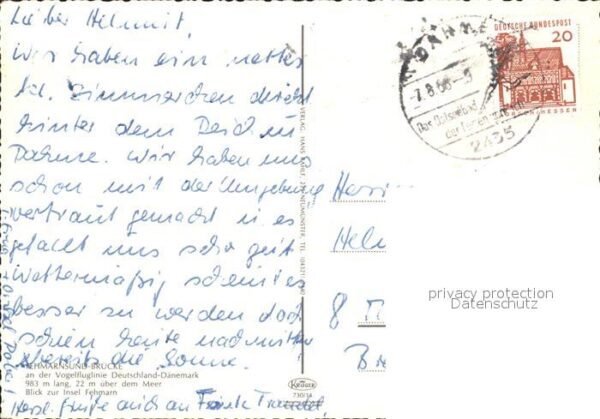 Lieber Helmut,
Wir haben ein nettes
kl. Zimmerchen direkt
hinter dem Deich in
Dahme. Wir haben uns
schon mit der Umgebung
vertraut gemacht u. es
gefällt uns sehr gut
Wettermäßig scheint es
besser zu werden doch
schien heute nachmittag
bereits die Sonne!
FEHMARNSUND-BRÜCKE
an der Vogelfluglinie Deutschland-Dänemark
983 m lang, 22 m über dem Meer
Blick zur Insel Fehmarn
Herzl. Grüße auch an
VERLAG HANS
NEUMÜNSTER, TEL.
KRÜGER
730/14
DEUTSCHE BUNDESPOST
20
HESSEN
DAHME
-7.8.66-
Das Ostseebad
der
2435
Herrn
Helm
8 M
privacy protection
Datenschutz